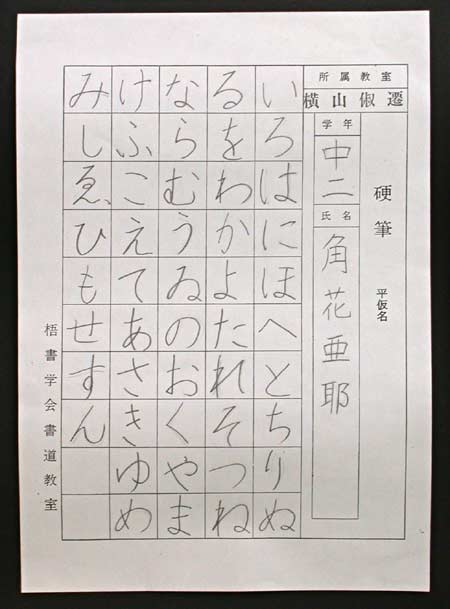 所属教室
横山俶遷
硬筆 平仮名
学年
中二
氏名
角花亜耶
いろはにほへとちりぬ
るをわかよたれそつね
ならむうゐのおくやま
けふこえてあさきゆめ
みしゑひもせすん
梧書学会書道教室